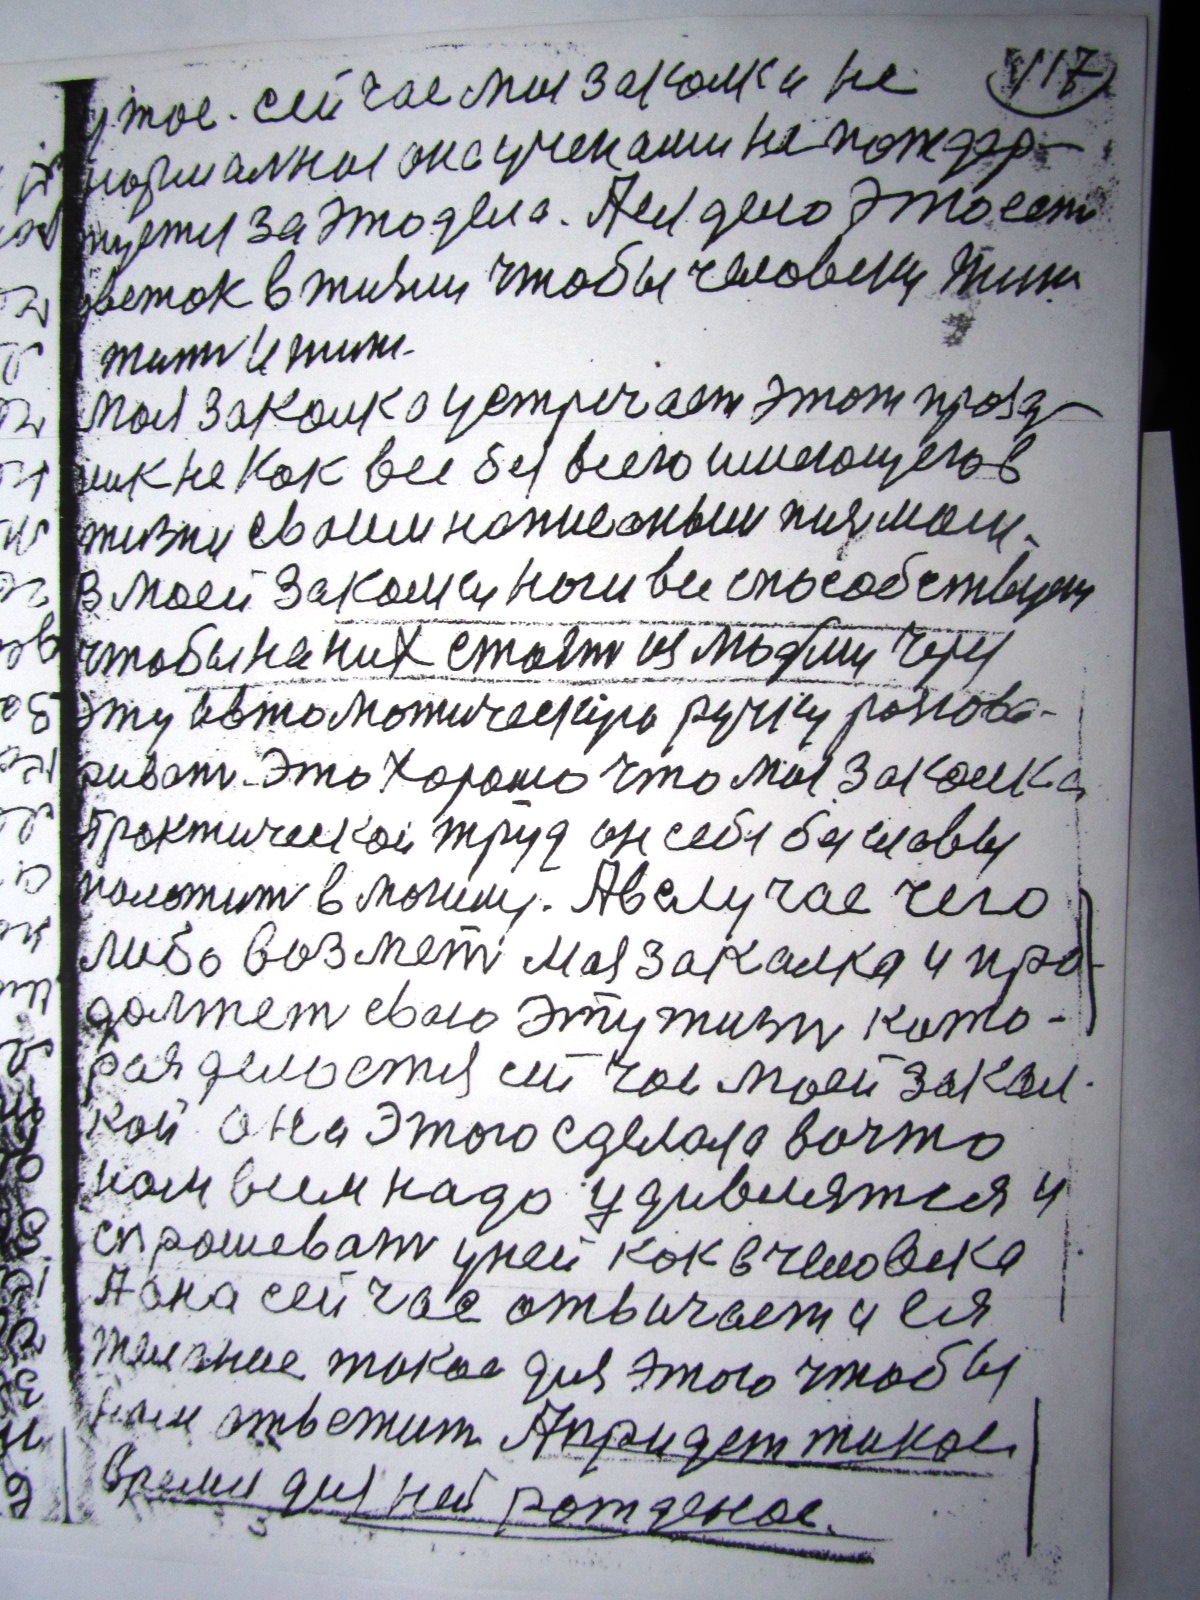 117
утое. сейчас моя закалка не
нормалная она ученами не потдер-
туетия за это дела. Ая дело это есть
цветок в тизни чтобы человеку тит
тит и тит.
Моя закалка устречает этот празд-
ник не как все без всего имеющего в
тизни своим написаным писмом.
В моей закалки ноги все способствуют
чтобы на них стоят из людми через
эту автоматическую ручку разгова-
риват. Это хорошо что моя закалка
практический труд он себя без славы
полотит в могилу. А в случае чего
либо возмет моя закалка и про-
долтет свою эту тизн кото-
рая делается сейчас моей закал-
кой она этого сделала вочто
нам всем надо удивлятся и
спрошеват у ней как в человека
А она сейчас отвичает и ея
такое для этого чтобы
нам ответит А придет такое
время для ней ротденое.